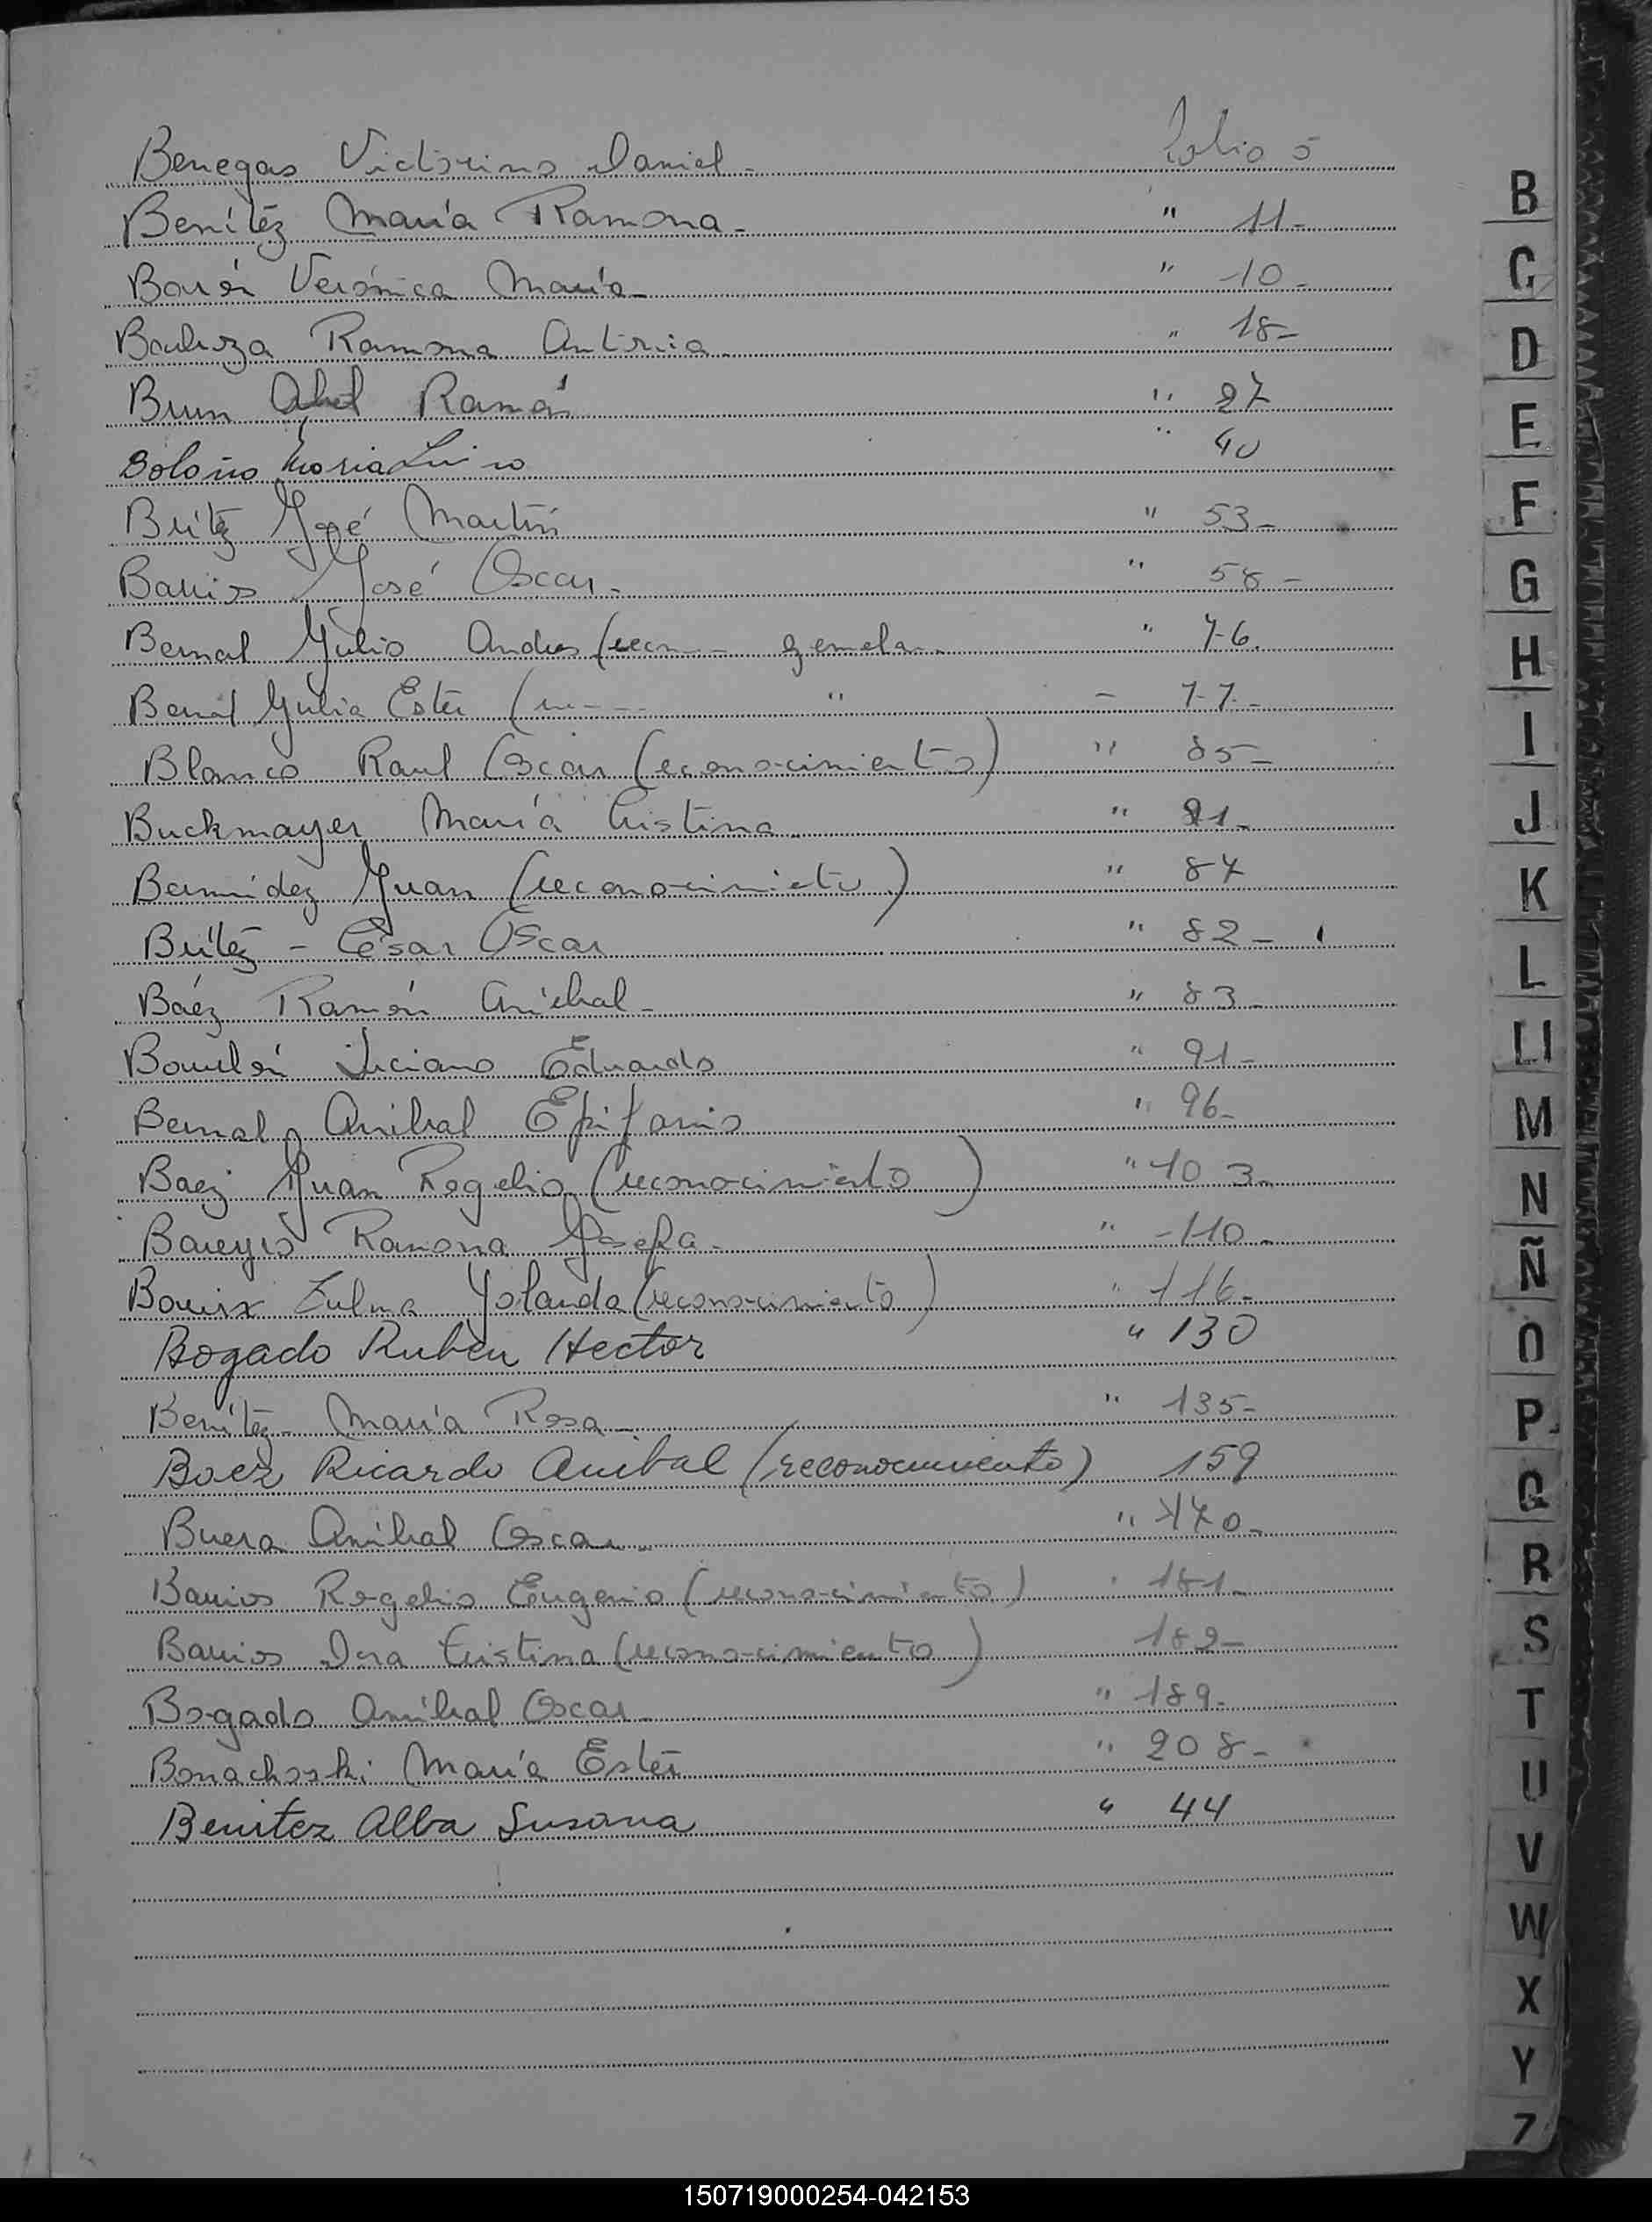 Benegas Victorino Daniel - Folio 5
Benítez María Ramona - " 11-
Verónica María " 10-
Ramona Antonia " 18-
Brun Abel Ramón " 27
Bolaño Maria " 40
Brítez José Martín " 53-
Barrios José Oscar - " 58-
Bernal Julio Andres (recon-- gemela-- " 76.
Bernal Julia Ester (re---- " - 77-
Blanco Raul Oscar (reconocimiento) " 85-
Buckmayer María Cristina " 81-
Bermúdez Juan (reconocimieto) " 87
Brítez - César Oscar " 82-
Báez Ramón Aníbal - " 83-
Luciano Eduardo " 91-
Bernal Anibal Epifanio " 96-
Baez Juan Rogelio (reconocimiento) " 103-
Barreyro Ramona Josefa - " 110-
Zulma Yolanda (reconocimiento) " 116-
Bogado Rubèn Hector " 130
Benítez - María Rosa - " 135-
Baez Ricardo Anibal (reconocimiento) 159
Buera Aníbal Oscar - " 170-
Barrios Rogelio Eugenio (reconocimiento) " 181-
Barrios Cristina (reconocimiento) 182-
Bogado Aníbal Oscar - " 189-
Bonachoski María Ester " 208-
Benitez Alba Susana " 44
B
C
D
E
F
G
H
I
J
K
L
Ll
M
N
Ñ
O
P
Q
R
S
T
U
V
W
X
Y
Z
150719000254-042153